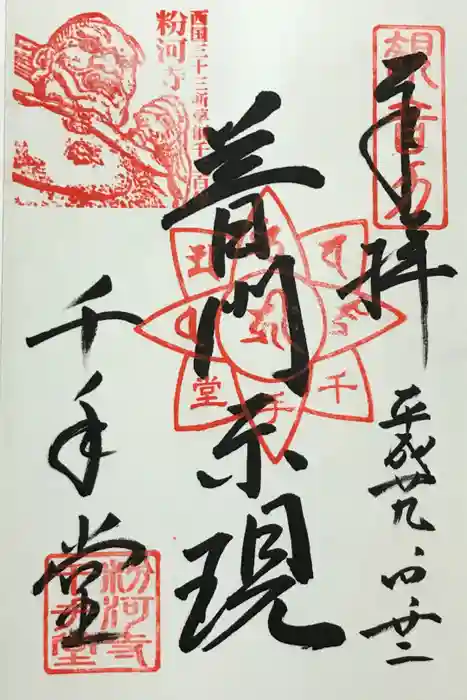 奉拝
平成廿九、四、廿二
普門示現
千手堂
西国三十三所草創千三百
粉河寺
観音
千手堂
粉河寺
千手堂